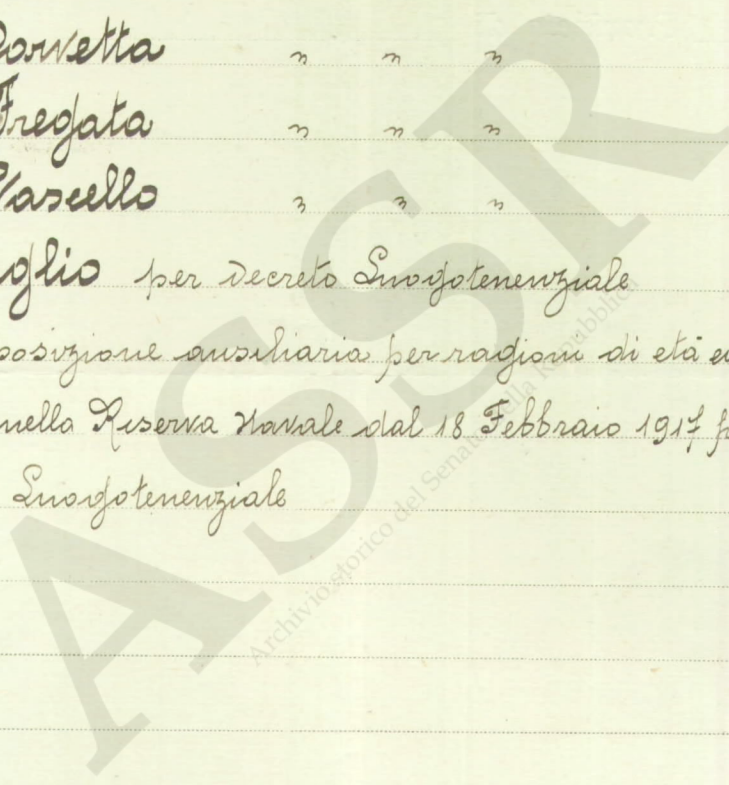 Corvetta " " "
Fregata " " "
Vascello " " "
glio per Decreto Luogotenenziale
posizione ausiliaria per ragioni di età e
nella Riserva Navale dal 18 Febbraio 1917 p
Luogotenenziale
ASSR
Archivio storico del Senato della Repubblica